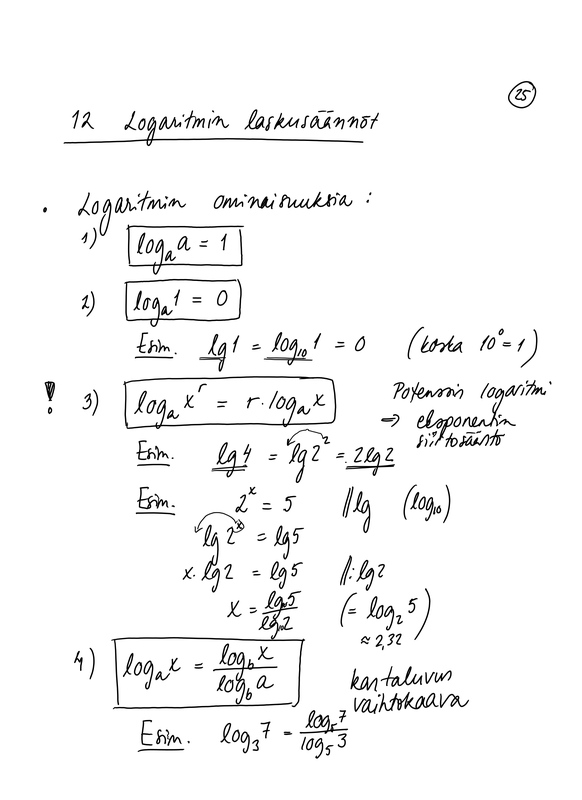 25
12 Logaritmin laskusäännöt
• Logaritmin ominaisuuksia :
1) logₐ a = 1
2) logₐ 1 = 0
Esim. lg 1 = log₁₀ 1 = 0 (koska 10⁰ = 1)
! 3) logₐ xʳ = r · logₐ x
Potenssin logaritmi
→ eksponentin
siirtosääntö
Esim. lg 4 = lg 2² = 2 lg 2
Esim. 2ˣ = 5 || lg (log₁₀)
lg 2ˣ = lg 5
x · lg 2 = lg 5 || : lg 2
x = lg 5 / lg 2 (= log₂ 5)
≈ 2,32
4) logₐ x = log_b x / log_b a
kantaluvun
vaihtokaava
Esim. log₃ 7 = log₅ 7 / log₅ 3